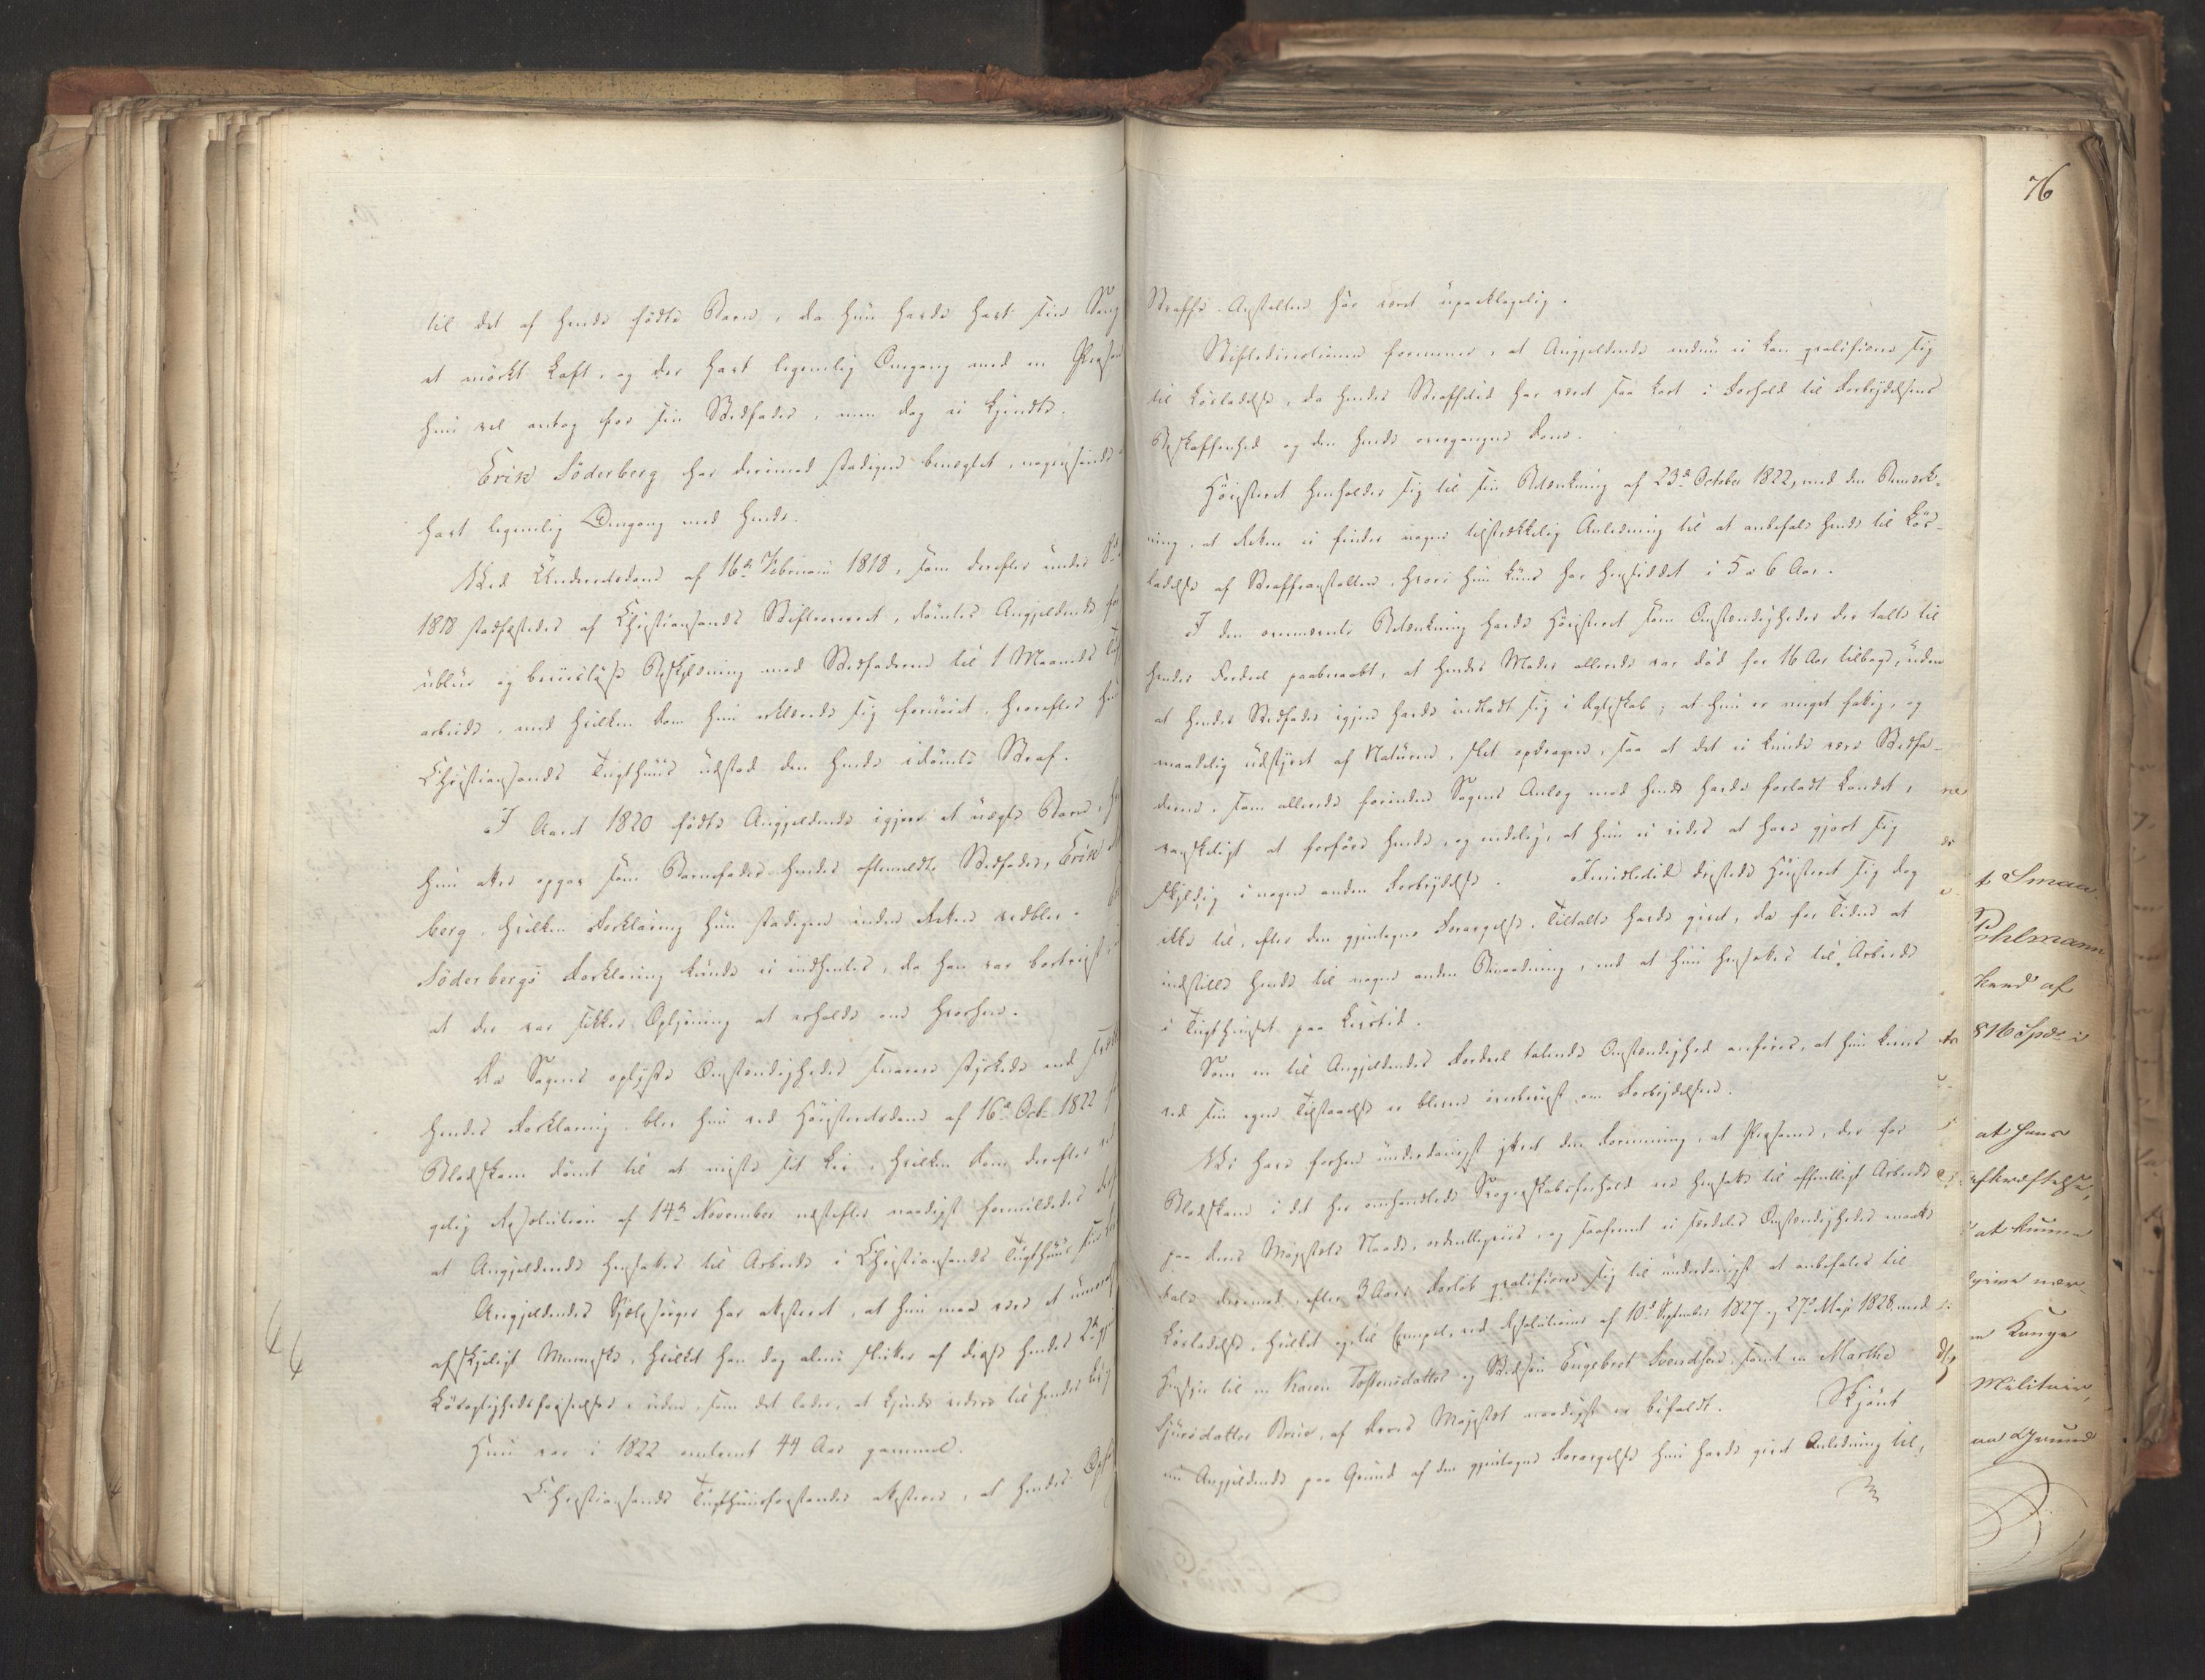 til det af hende födte Barn, da hun havde havt sin Seng
et mörkt Loft, og der havt legemlig Omgang med en Person
hun vel antog for sin Stedfader, men dog ei kjendte.
Erik Söderberg har derimod stadigen benegtet, nogensinde
havt legemlig Omgang med hende.
Ved Underretsdom af 16de Februarii 1818, som derefter under
1818 stadfæstedes af Christiansands Stiftsoverret, dömtes Angjeldende for
ublue og beviislös Beskyldning mod Stedfaderen til 1 Maaneds
arbeide, med hvilken Dom hun erklærede sig fornöiet, hvorefter hun
Christiansands Tugthuus udstod den hende idömte Straf.
I Aaret 1820 födte Angjeldende igjen et uægte Barn,
hun atter opgav som Barnefader hendes oftmeldte Stedfader, Erik
berg, hvilken Forklaring hun stadigen under Acten vedblev.
Söderbergs Forklaring kunde ei indhentes, da han var bortreist,
at der var sikker Oplysning at erholde om hvorhen.
Da Sagens oplyste Omstændigheder snarere styrkede end
hendes Forklaring, blev hun ved Höiesteretsdom af 16de Octb: 1822
Blodskam dömt til at miste sit Liv, hvilken Dom derefter ved
gelig Resolution af 14de November næstefter naadigst formildedes
at Angjeldende hensættes til Arbeide i Christiansands Tugthuus
Angjeldendes Sjælesörger har attesteret, at hun maa være et
afskyeligt Menneske, hvilket han dog alene slutter af disse hendes 2de
Lösagtighedsforseelser, uden, som det lader, at kjende videre til hendes
Hun var i 1822 omtrent 44 Aar gammel.
Christiansands Tugthuusforstander attesterer, at hendes
Straffe-Anstalten har været upaaklagelig.
Stiftsdirectionen formener, at Angjeldende endnu ei kan qvalificere sig
til Lösladelse, da hendes Straffetid har været saa kort i Forhold til Forbrydelsens
Beskaffenhed og den hende overgangne Dom.
Höiesteret henholder sig til sin Betænkning af 23de October 1822, med den Bemærk-
ning, at Retten ei finder nogen tilstrækkelig Anledning til at anbefale hende til Lös-
ladelse af Straffeanstalten, hvori hun kuns har hensiddet i 5 a 6 Aar.
I den ovennævnte Betænkning havde Höiesteret som Omstændigheder der talte til
hendes Fordeel paaberaabt, at hendes Moder allerede var död for 16 Aar tilbage, uden
at hendes Stedfader igjen havde indladt sig i Ægteskab; at hun er meget fattig, og
maadelig udstyret af Naturen, slet opdragen, saa at det ei kunde være Stedfa-
deren, som allerede forinden Sagens Anlæg mod hende havde forladt Landet,
vanskeligt at forföre hende, og endelig, at hun ei vides at have gjort sig
skyldig i nogen anden Forbrydelse. Imidlertid dristede Höiesteret sig dog
ikke til, efter den gjentagne Forargelse, Tiltalte havde givet, da for Tiden at
indstille hende til nogen anden Benaadning, end at hun hensættes til Arbeide
i Tugthuuset paa Livstid.
Som en til Angjeldendes Fordeel talende Omstændighed anföres, at hun kuns
ved sin egen Tilstaaelse er bleven overbeviist om Forbrydelsen.
Vi have forhen underdanigst yttret den Formening, at Personer, der for
Blodskam i det her omhandlede Svogerskabsforhold ere hensatte til offentligt Arbeide
paa Deres Majestæts Naade, ordentligviis, og saafremt ei særdeles Omstændigheder maatte
tale derimod, efter 3 Aars Forlöb qvalificere sig til underdanigst at anbefales til
Lösladelse, hvilket ogsaa til Exempel, ved Resolutioner af 10de September 1827 og 27de Maji 1828, med
Hensyn til en Karen Tostensdatter og Stedsön Engebret Svendsen samt en Marthe
Sjursdatter Brue, af Deres Majestæt naadigst er bifaldt. Skjönt
nu Angjeldende paa Grund af den gjentagne Forargelse hun havde givet Anledning til,
76
t Smaa
Pohlmann
Stand af
816 Spd i
at hans
at kunne
give nær-
Kunge
Militair,
aa Grund